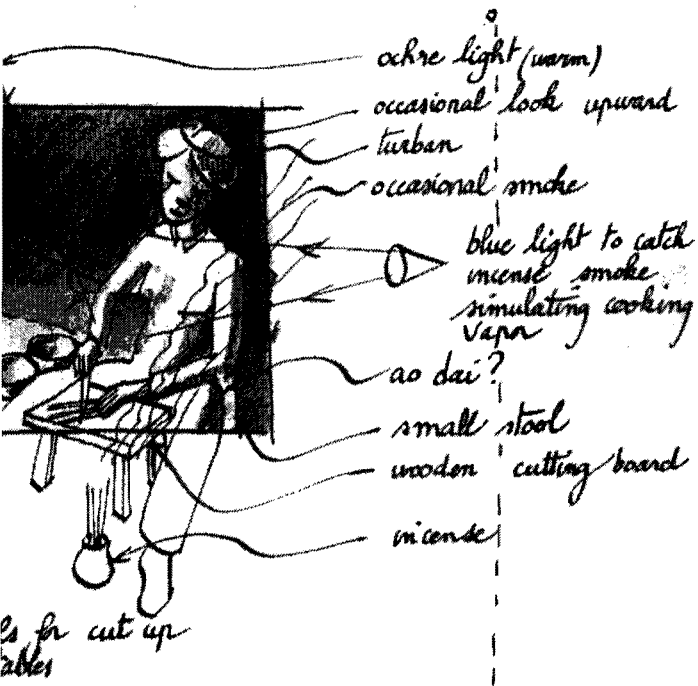 ochre light (warm)
occasional look upward
turban
occasional smoke
blue light to catch
incense smoke
simulating cooking
vapor
ao dai?
small stool
wooden cutting board
incense
ls for cut up
ables